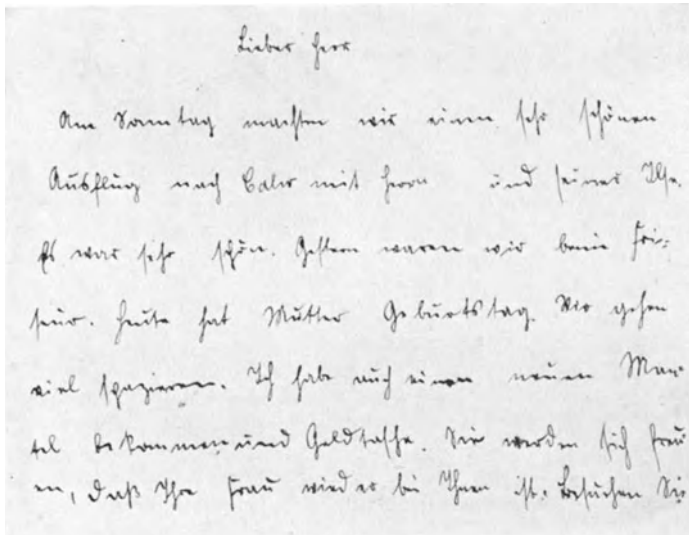 Lieber Herr
Am Sonntag machten wir einen sehr schönen
Ausflug nach Calw mit Herrn und seiner Ilse.
Es war sehr schön. Gestern waren wir beim Fri-
seur. Heute hat Mutter Geburtstag. Wir gehen
viel spazieren. Ich habe auch einen neuen Man-
tel bekommen und Geldtasche. Sie werden sich freu
en, daß Ihre Frau wieder bei Ihnen ist. Besuchen Sie